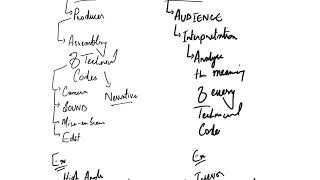 Producer
Assembling
of Technical
Codes
Camera
SOUND
Mise-en-Scene
Edit
Narrative
Ex
High Angle
AUDIENCE
Interpretation
Analyse
the meaning
of every
Technical
Code
Ex